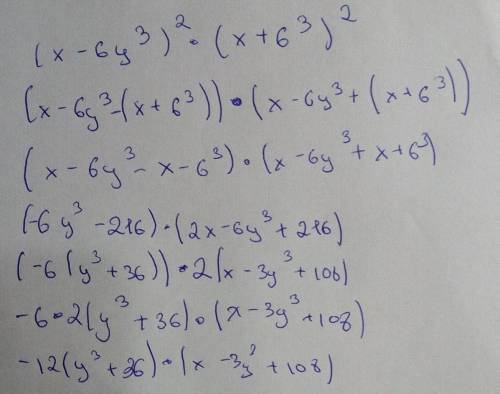 (x - 6y³)² • (x + 6³)²
(x - 6y³ - (x + 6³)) • (x - 6y³ + (x + 6³))
(x - 6y³ - x - 6³) • (x - 6y³ + x + 6³)
(-6y³ - 216) • (2x - 6y³ + 216)
(-6(y³ + 36)) • 2(x - 3y³ + 108)
-6 • 2(y³ + 36) • (x - 3y³ + 108)
-12(y³ + 36) • (x - 3y³ + 108)